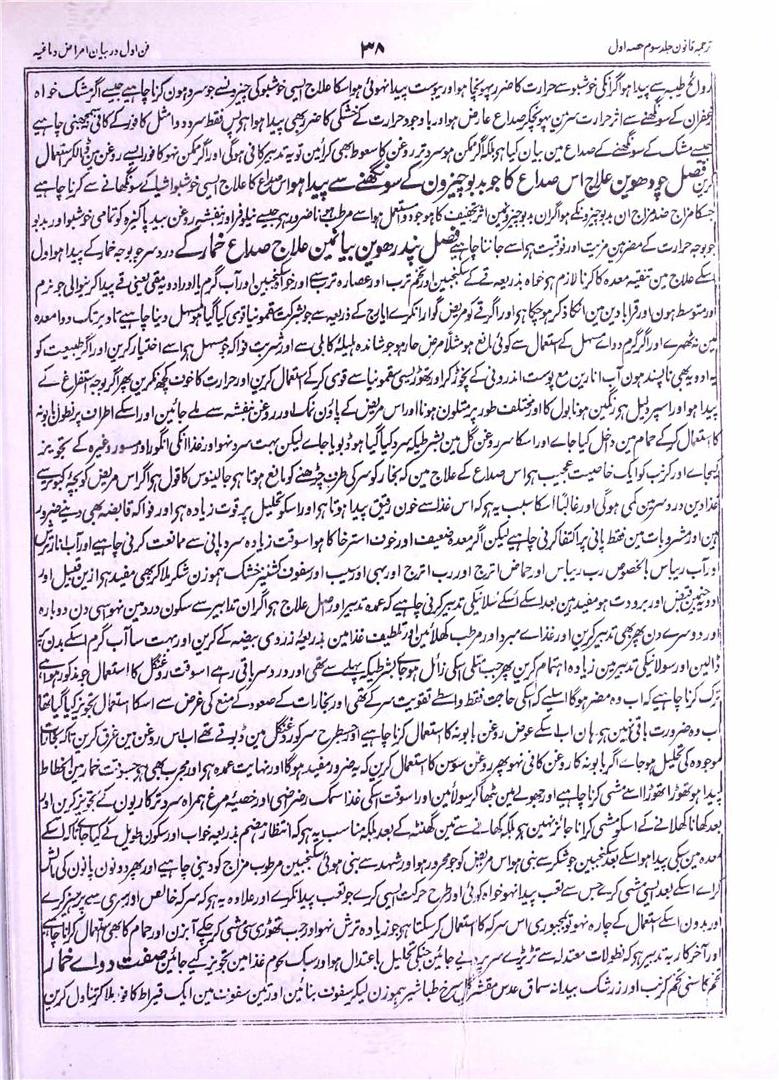 ترجمہ قانون جلد سوم حصہ اول ۳۸ فن اول در بیان امراض دماغیہ
روائح طیبہ سے پیدا ہو اگر انکی خوشبو سے حرارت کا ضرر پہونچا ہو اور یبوست پیدا نہوئی ہو اسکا علاج ایسی خوشبو کی چیزونسے جو سرد ہون کرنا چاہیے جیسے اگر مشک خواہ
زعفران کے سونگھنے سے اثر حرارت سر مین پہونچکر صداع عارض ہو اور باوجود حرارت کے خشکی کا ضرر بھی پیدا ہو اسوقت فقط سرد دوا مثل کافور کے کافی نہین
جیسے مشک کے سونگھنے کے صداع مین بیان کیا ہے بلکہ اگر ممکن ہو سرد تر روغن کا سعوط بھی کرائین تو یہ تدبیر کافی ہوگی اور اگر ممکن نہو کافور ایسے روغن مین ڈالکر استعمال
کرین فصل چودھوین علاج اس صداع کا جو بدبو چیزون کے سونگھنے سے پیدا ہو اس صداع کا علاج ایسی خوشبو اشیا کے سونگھانے سے کرنا چاہیے
جسکا مزاج ضد مزاج ان بدبو چیزونکے ہو اگر ان بدبو چیزون مین اثر تجفیف کا موجود ہو اسے مرطب ہونا ضرور ہے جیسے نیلوفر اور بنفشہ روغن بید پاکیزہ کو تمامی خوشبو اور بدبو
جو بوجہ حرارت کے مضر ہین مزیت اور فوقیت ہے اسے جاننا چاہیے فصل پندرھوین بیان مین علاج صداع خمار کے درد سر جو بوجہ خمار کے پیدا ہو اول
اسکے علاج مین تنقیہ معدہ کا کرنا لازم ہے خواہ بذریعہ قے کے سکنجبین اور تخم ترب اور عصارہ ترب سے اور خواہ سکنجبین اور آب گرم یا اور ادویہ قے یعنی قے پیدا کرنیوالی جو نرم
اور متوسط ہون اور قرابادین مین انکا ذکر ہو چکا ہے اور اگر قے کو مریض گوارا نکرے ایارج کے ذریعہ سے جو بشرکت سقمونیا قوی کیا گیا ہو مسہل دینا چاہیے تا دیر تک دوا معدہ
مین نہ ٹھہرے اور اگر گرم دواے مسہل کے استعمال سے کوئی مانع ہو مثلا مرض حار ہو جوشاندہ ہلیلہ کابلی سے اور شربت فواکہ جو مسہل ہے اسے اختیار کرین اور اگر طبیعت کو
یہ ادویہ بھی ناپسند ہون آب انارین مع پوست اندرونی کے نچوڑ کر اور تھوڑی سی سقمونیا سے قوی کر کے استعمال کرین اور حرارت کا خوف کچھ نکرین پھر اگر بوجہ استفراغ کے
پیدا ہو اور اسپر دلیل رنگین ہونا بول کا اور مختلف طور پر متلون ہونا اور اس مریض کے پاؤن نمک اور روغن بنفشہ سے ملے جائین اور اسکے اطراف پر نطول بابونہ
کا استعمال کر کے حمام مین داخل کیا جاے اور اسکا سر روغن گل مین بشرطیکہ سرد کیا گیا ہو ڈبویا جاے لیکن بہت سرد نہو اور غذا انکی انگور اور مسور وغیرہ کے تجویز
کیجاے اور کرنب کو ایک خاصیت عجیب ہے اس صداع کے علاج مین کہ بخار کو سر کی طرف چڑھنے کو مانع ہوتا ہے جالینوس کا قول ہے اگر اس مریض کو بچہ کبوتر سے
غذا دین درد سر مین کمی ہوگی اور غالبا اسکا سبب یہ ہے کہ اس غذا سے خون رقیق پیدا ہوتا ہے اور اسکو تحلیل پر قوت زیادہ ہے اور فواکہ قابضہ بھی دینے ضرور
ہین اور مشروبات مین فقط پانی پر اکتفا کرنی چاہیے لیکن اگر معدہ ضعیف اور خوف استرخا کا ہو اسوقت زیادہ سرد پانی سے ممانعت کرنی چاہیے اور آب انار ترش
اور آب ریباس بالخصوص رب ریباس اور حماض اترج اور رب اترج اور بہی اور سیب اور سفوف کشنیز خشک ہموزن شکر ملا کر بھی مفید ہے ازین قبیل اور
ادویہ جنمین قبض اور برودت ہو مفید ہین بعد اسکے اسکے سلانیکی تدبیر کرنی چاہیے کہ عمدہ تدبیر اور اصل علاج ہے اگر ان تدابیر سے سکون درد مین نہو اسی دن دوبارہ
اور دوسرے دن پھر بھی تدبیر کرین اور غذاے مبرد اور مرطب کھلائین اور تلطیف غذا مین بذریعہ زردی بیضہ کے کرین اور بہت سا آب گرم اسکے بدن پر
ڈالین اور سولانیکی تدبیر مین زیادہ اہتمام کرین پھر جب متلی اسکی زائل ہو جاے بشرطیکہ پہلے سے تھی اور درد سر باقی رہے اسوقت روغن گل کا استعمال جو مذکور ہوا ہے
ترک کرنا چاہیے کہ اب وہ مضر ہوگا اسلیے کہ اسکی حاجت فقط واسطے تقویت سر کے تھی اور بخارات کے صعود کے منع کی غرض سے اسکا استعمال تجویز کیا گیا تھا
اب وہ ضرورت باقی نہین ہے ہان اب اسکے عوض روغن بابونہ کا استعمال کرنا چاہیے اور جسطرح سر کو روغن گل مین ڈبوتے تھے اب اس روغن مین غرق کرین تاکہ بخارات
موجودہ کی تحلیل ہو جاے اگر بابونہ کا روغن کافی نہو پھر روغن سوسن کا استعمال کرین کہ یہ ضرور مفید ہوگا اور نہایت عمدہ ہے اور مجرب بھی ہے جسوقت خمار مین انحطاط
پیدا ہو تھوڑا تھوڑا اسے مشی کرنا چاہیے اور جھولے مین بٹھا کر سولائین اور اسوقت اسکی غذا سمک رضراضی اور خصیہ مرغ ہمراہ سرد ترکاریون کے تجویز کرین اور
بعد کھانا کھلانے کے اسکو مشی کرانا جائز نہین ہے بلکہ کھانے سے تین گھنٹہ کے بعد بلکہ مناسب یہ ہے کہ انتظار ہضم بذریعہ خواب اور سکون طویل کے کیا جاے تاکہ اسکے
معدہ مین سبکی پیدا ہو اسکے بعد سکنجبین جو شکر سے بنی ہو اس مریض کو جو محرور ہو اور شہد سے بنی ہوئی سکنجبین مرطوب مزاج کو دینی چاہیے اور پھر دونون پانون کی مالش
کرائے اسکے بعد ایسی مشی کرے جس سے تعب پیدا نہو خواہ کوئی اور طرح حرکت ایسی کرے جو تعب پیدا نکرے اور علاوہ یہ ہے کہ سرکہ خالص اور مری سے پرہیز کرے
اور بدون اسکے استعمال کے چارہ نہو تو بمجبوری اس سرکہ کا استعمال کر سکتا ہے جو زیادہ ترش نہو اور جب تھوڑی سی مشی کر چکے آبزن اور حمام کا بھی استعمال کرنا چاہیے
اور آخر کار یہ تدبیر ہے کہ نطولات معتدلہ سے تڑیڑے سر پر دیے جائین جنکی تحلیل باعتدال ہو اور سبک لحوم غذا مین تجویز کیے جائین صفت دواے خمار
تخم کاسنی تخم کرنب اور زرشک بیدانہ سماق عدس مقشر گل سرخ طباشیر ہموزن لیکر سفوف بنائین اور تین سفوف مین ایک قیراط کافور ملا کر تناول کرین